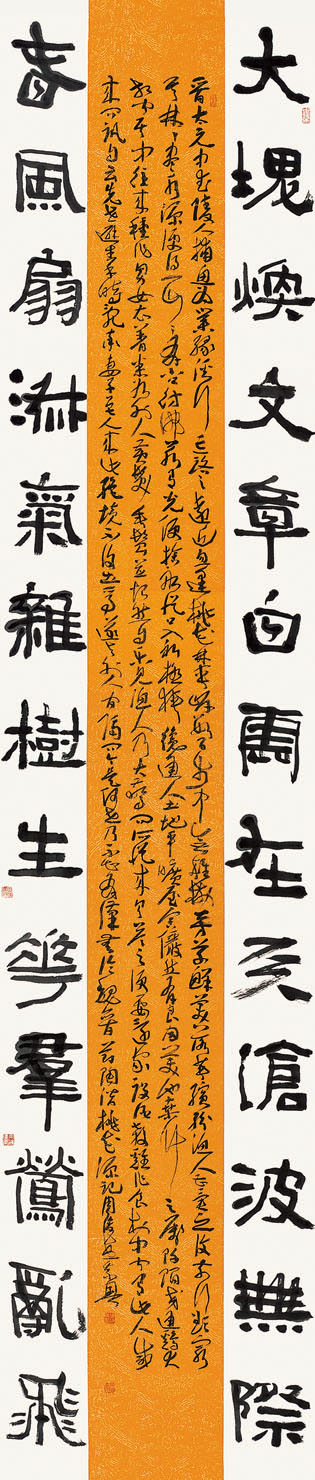 大塊煥文章白雲在天滄波無際
晉太元中武陵人捕魚為業緣溪行忘路之遠近忽逢桃花林夾岸數百步中無雜樹芳草鮮美落英繽紛漁人甚異之復前行欲窮
其林林盡水源便得一山山有小口彷彿若有光便捨船從口入初極狹纔通人土地平曠屋舍儼然有良田美池桑竹之屬阡陌交通雞犬
相聞其中往來種作男女衣着悉如外人黃髮垂髫並怡然自樂見漁人乃大驚問所從來具答之便要還家設酒殺雞作食村中聞有此人咸
來問訊自云先世避秦時亂率妻子邑人來此絕境不復出焉遂與外人間隔問今是何世乃不知有漢無論魏晉節陶潛桃花源記
春風扇淑氣雜樹生華羣鶯亂飛